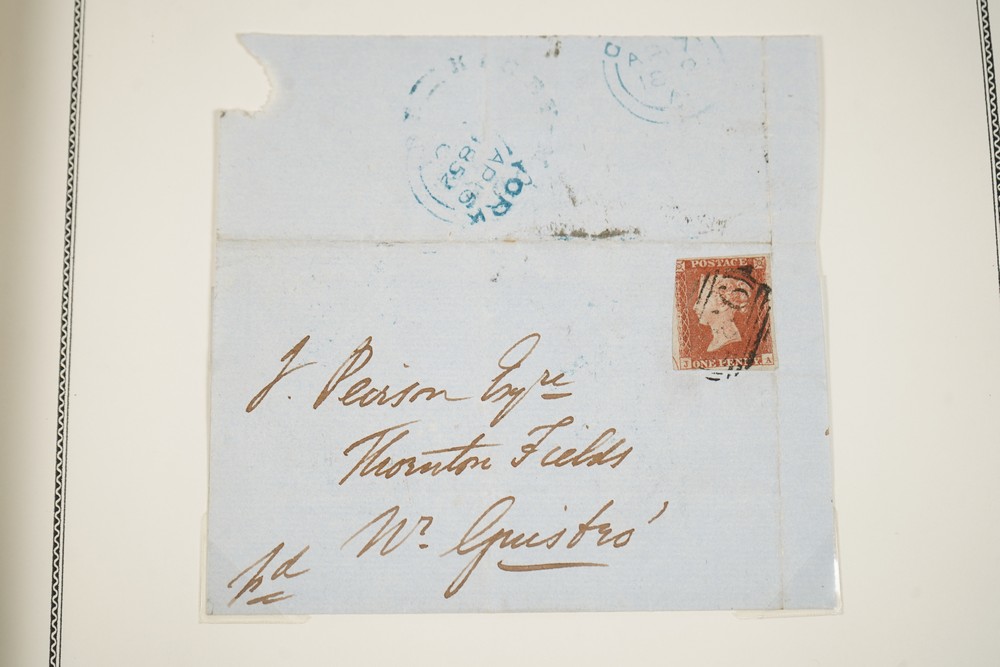 YORK
AP 6
1852
POSTAGE
J A
ONE PENNY
J. Pearson Esqre
Thornton Fields
Nr. Guisbro'
pd